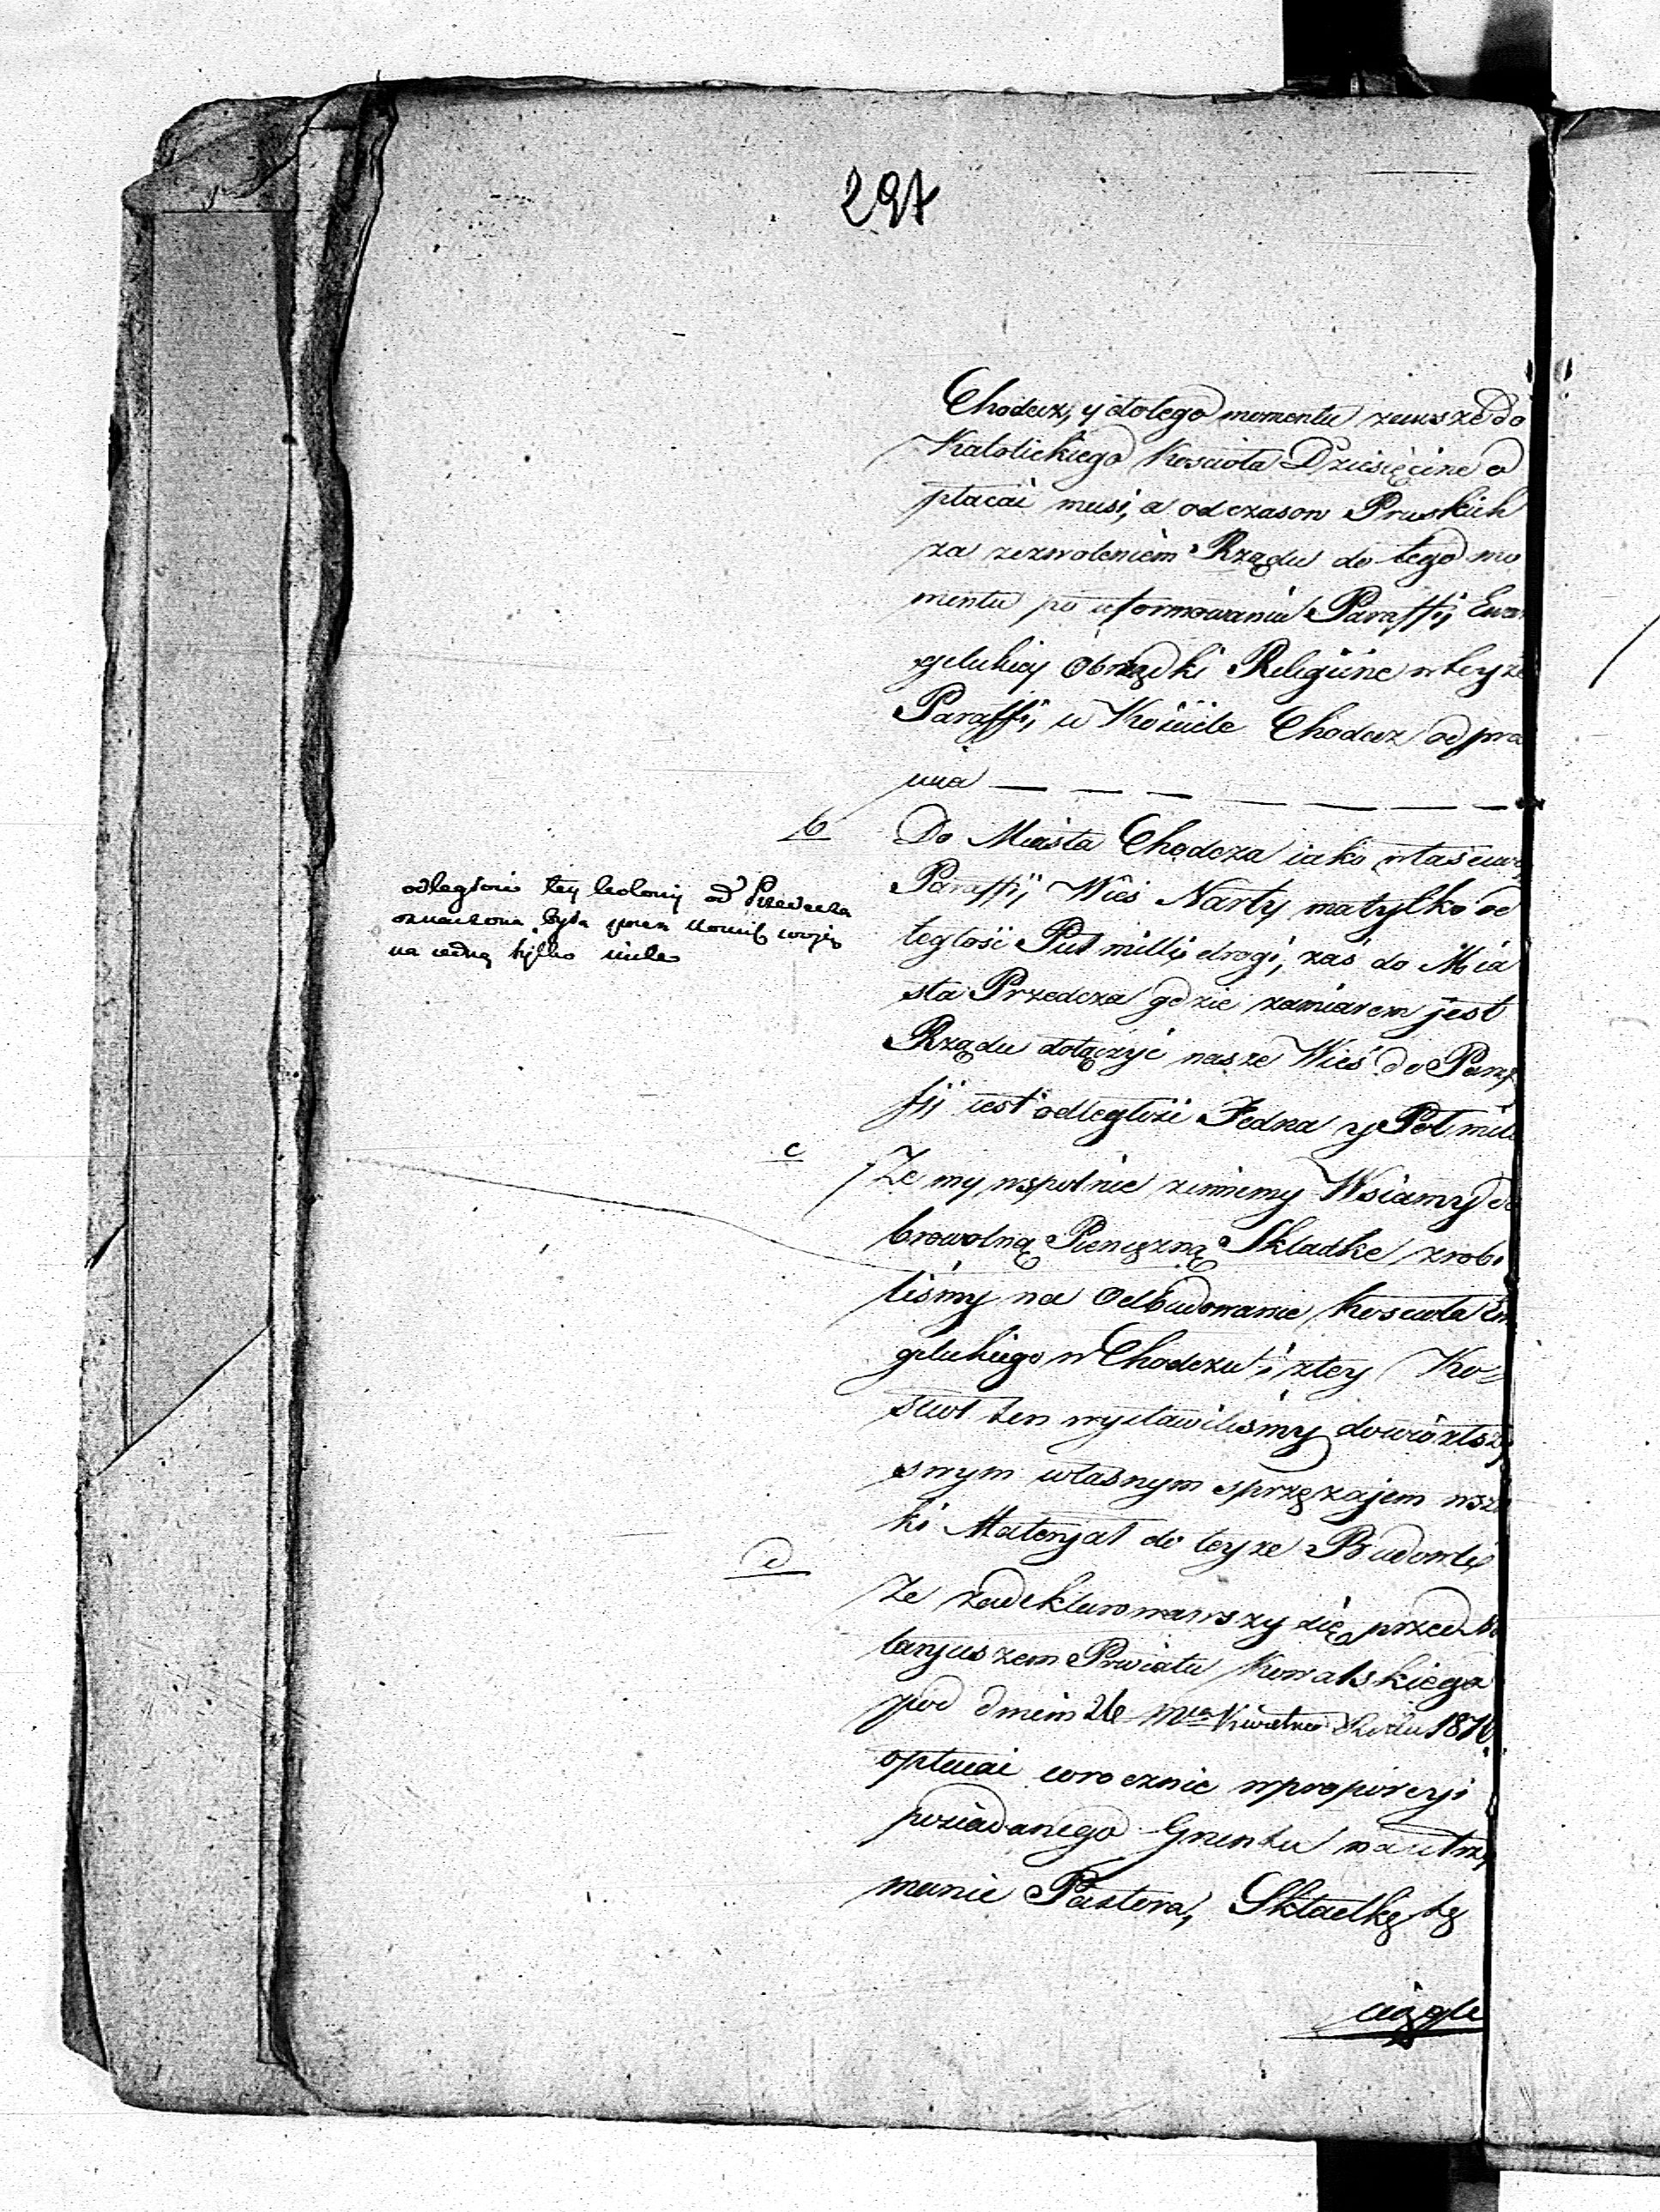 297
Chodecz, y do tego momentu zawsze do
Katolickiego Kosciola Dziesięcine o
placać musi, a od czasow Pruskich
za zezwoleniem Rządu do tego mo
mentu po uformowaniu Paraffij Ewan
gelickiey Obrządki Religiine w teyze
Paraffij w Kościele Chodecz odpra
wia — — — — — — — —
b
Do Miasta Chodcza iako własciwey
Paraffij Wieś Narty ma tylko od
ległości Puł milli drogi, zaś do Mia
sta Przedcza gdzie zamiarem jest
Rządu dołączyć nasze Wieś do Para
fji iest odległości Jedna y Poł mili
odległość tey kolonij od Przedcza
oznaczona była przez
na iedną tylko mile
c
Ze my wspolnie z innemy Wsiamy do
browolną Pienięzną Skladke zrobi
liśmy na Odbudowanie Kosciola Ewan
gelickiego w Chodczu i ztey Ko=
sciol ten wystawiliśmy dowiózłszy
swym własnym sprzęzajem wszel
ki Materyał do teyze Budowli
d
Ze zadeklarowawszy się przed No
taryuszem Powiatu Kowalskiego
pod dniem 26 Mca Kwietnia Roku 1810
opłacać corocznie w proporcyi
posiadanego Gruntu na utrzy
manie Pastora, Składkę tę
ciągle